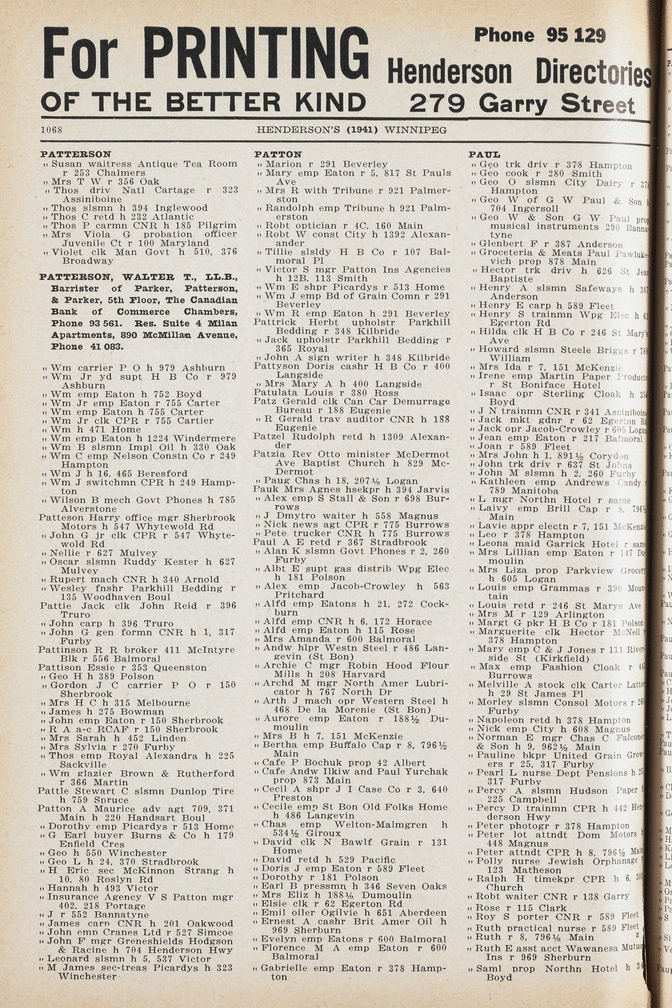 For PRINTING
OF THE BETTER KIND
Phone 95 129
Henderson Directories
279 Garry Street
1068
HENDERSON'S (1941) WINNIPEG
PATTERSON
„ Susan waitress Antique Tea Room
r 253 Chalmers
„ Mrs T W r 356 Oak
„ Thos driv Natl Cartage r 323
Assiniboine
„ Thos slsmn h 394 Inglewood
„ Thos C retd h 232 Atlantic
„ Thos P carmn CNR h 185 Pilgrim
„ Mrs Viola G probation officer
Juvenile Ct r 100 Maryland
„ Violet clk Man Govt h 510, 376
Broadway
PATTERSON, WALTER T., LL.B.,
Barrister of Parker, Patterson,
& Parker, 5th Floor, The Canadian
Bank of Commerce Chambers,
Phone 93 561. Res. Suite 4 Milan
Apartments, 890 McMillan Avenue,
Phone 41 083.
„ Wm carrier P O h 979 Ashburn
„ Wm Jr yd supt H B Co r 979
Ashburn
„ Wm emp Eaton h 752 Boyd
„ Wm Jr emp Eaton r 755 Carter
„ Wm emp Eaton h 755 Carter
„ Wm Jr clk CPR r 755 Cartier
„ Wm h 471 Home
„ Wm emp Eaton h 1224 Windermere
„ Wm B slsmn Impl Oil h 330 Oak
„ Wm C emp Nelson Constn Co r 249
Hampton
„ Wm J h 16, 465 Beresford
„ Wm J switchmn CPR h 249 Hamp-
ton
„ Wilson B mech Govt Phones h 785
Alverstone
Patteson Harry office mgr Sherbrook
Motors h 547 Whytewold Rd
„ John G jr clk CPR r 547 Whyte-
wold Rd
„ Nellie r 627 Mulvey
„ Oscar slsmn Ruddy Kester h 627
Mulvey
„ Rupert mach CNR h 340 Arnold
„ Wesley fnshr Parkhill Bedding r
135 Woodhaven Boul
Pattie Jack clk John Reid r 396
Truro
„ John carp h 396 Truro
„ John G gen formn CNR h 1, 317
Furby
Pattinson R R broker 411 McIntyre
Blk r 556 Balmoral
Pattison Essie r 353 Queenston
„ Geo H h 389 Polson
„ Gordon J C carrier P O r 150
Sherbrook
„ Mrs H C h 315 Melbourne
„ James h 275 Bowman
„ John emp Eaton r 150 Sherbrook
„ R A a-c RCAF r 150 Sherbrook
„ Mrs Sarah h 452 Linden
„ Mrs Sylvia r 270 Furby
„ Thos emp Royal Alexandra h 225
Sackville
„ Wm glazier Brown & Rutherford
r 366 Martin
Pattle Stewart C slsmn Dunlop Tire
h 759 Spruce
Patton A Maurice adv agt 709, 371
Main h 220 Handsart Boul
„ Dorothy emp Picardys r 513 Home
„ G Earl buyer Burns & Co h 179
Enfield Cres
„ Geo h 550 Winchester
„ Geo L h 24, 370 Stradbrook
„ H Eric sec McKinnon Strang h
10, 80 Roslyn Rd
„ Hannah h 493 Victor
„ Insurance Agency V S Patton mgr
402, 218 Portage
„ J r 552 Bannatyne
„ James carn CNR h 201 Oakwood
„ John emp Cranes Ltd r 527 Simcoe
„ John F mgr Greneshields Hodgson
& Racine h 704 Henderson Hwy
„ Leonard slsmn h 5, 537 Victor
„ M James sec-treas Picardys h 323
Winchester
PATTON
„ Marion r 291 Beverley
„ Mary emp Eaton r 5, 817 St Pauls
Ave
„ Mrs R with Tribune r 921 Palmer-
ston
„ Randolph emp Tribune h 921 Palm-
erston
„ Robt optician r 4C, 160 Main
„ Robt W const City h 1392 Alexan-
ander
„ Tillie slsldy H B Co r 107 Bal-
moral Pl
„ Victor S mgr Patton Ins Agencies
h 12B, 113 Smith
„ Wm E shpr Picardys r 513 Home
„ Wm J emp Bd of Grain Comn r 291
Beverley
„ Wm R emp Eaton h 291 Beverley
Pattrick Herbt upholstr Parkhill
Bedding r 348 Kilbride
„ Jack upholstr Parkhill Bedding r
365 Royal
„ John A sign writer h 348 Kilbride
Pattyson Doris cashr H B Co r 400
Langside
„ Mrs Mary A h 400 Langside
Patulata Louis r 380 Ross
Patz Gerald clk Can Car Demurrage
Bureau r 188 Eugenie
„ R Gerald trav auditor CNR h 188
Eugenie
Patzel Rudolph retd h 1309 Alexan-
der
Patzia Rev Otto minister McDermot
Ave Baptist Church h 829 Mc-
Dermot
„ Paug Chas h 18, 207½ Logan
Pauk Mrs Agnes hsekpr h 394 Jarvis
„ Alex emp S Stall & Son r 698 Bur-
rows
„ J Dmytro waiter h 558 Magnus
„ Nick news agt CPR r 775 Burrows
„ Pete trucker CNR h 775 Burrows
Paul A E retd r 367 Stradbrook
„ Alan K slsmn Govt Phones r 2, 260
Furby
„ Albt E supt gas distrib Wpg Elec
h 181 Polson
„ Alex emp Jacob-Crowley h 563
Pritchard
„ Alfd emp Eatons h 21, 272 Cock-
burn
„ Alfd emp CNR h 6, 172 Horace
„ Alfd emp Eaton h 115 Rose
„ Mrs Amanda r 600 Balmoral
„ Andw hlpr Westn Steel r 486 Lan-
gevin (St Bon)
„ Archie C mgr Robin Hood Flour
Mills h 208 Harvard
„ Archd M mgr North Amer Lubri-
cator h 767 North Dr
„ Arth J mach opr Western Steel h
468 De la Morenie (St Bon)
„ Aurore emp Eaton r 188½ Du-
moulin
„ Mrs B h 7, 151 McKenzie
„ Bertha emp Buffalo Cap r 8, 796½
Main
„ Cafe P Bochuk prop 42 Albert
„ Cafe Andw Ilkiw and Paul Yurchak
prop 873 Main
„ Cecil A shpr J I Case Co r 3, 640
Preston
„ Cecile emp St Bon Old Folks Home
h 486 Langevin
„ Chas emp Welton-Malmgren h
534½ Giroux
„ David clk N Bawlf Grain r 131
Home
„ David retd h 529 Pacific
„ Doris J emp Eaton r 589 Fleet
„ Dorothy r 181 Polson
„ Earl B pressmn h 346 Seven Oaks
„ Mrs Eliz h 188½ Dumoulin
„ Elsie clk r 62 Egerton Rd
„ Emil oiler Ogilvie h 651 Aberdeen
„ Ernest A cashr Brit Amer Oil h
969 Sherburn
„ Evelyn emp Eatons r 600 Balmoral
„ Florence M A emp Eaton r 600
Balmoral
„ Gabrielle emp Eaton r 378 Hamp-
ton
PAUL
„ Geo trk driv r 378 Hampton
„ Geo cook r 280 Smith
„ Geo O slsmn City Dairy r
Hampton
„ Geo W of G W Paul & Son
704 Ingersoll
„ Geo W & Son G W Paul
musical instruments 290
tyne
„ Glenbert F r 387 Anderson
„ Groceteria & Meats Paul
vich prop 878 Main
„ Hector trk driv h 626 St
Baptiste
„ Henry A slsmn Safeways h
Anderson
„ Henry E carp h 589 Fleet
„ Henry S trainmn Wpg Elec h
Egerton Rd
„ Hilda clk H B Co r 246 St Mary's
Ave
„ Howard slsmn Steele Briggs r
William
„ Mrs Ida r 7, 151 McKenzie
„ Irene emp Martin Paper
r St Boniface Hotel
„ Isaac opr Sterling Cloak h
Boyd
„ J N trainmn CNR r 341 Assiniboine
„ Jack mkt gdnr r 62 Egerton
„ Jack opr Jacob-Crowley r 605
„ Jean emp Eaton r 217 Balmoral
„ Joan r 589 Fleet
„ Mrs John h 1, 891½ Corydon
„ John trk driv r 637 St Johns
„ John M slsmn h 2, 260 Furby
„ Kathleen emp Andrews Candy
789 Manitoba
„ L mgr Northn Hotel r same
„ Laivy emp Brill Cap r 8,
Main
„ Lavie appr electn r 7, 151
„ Leo r 378 Hampton
„ Leona maid Garrick Hotel r
„ Mrs Lillian emp Eaton r 147
moulin
„ Mrs Liza prop Parkview
h 605 Logan
„ Louis emp Grammas r 390
tain
„ Louis retd r 246 St Marys Ave
„ Mrs M r 129 Arlington
„ Margt G pkr H B Co r 181 Polson
„ Marguerite clk Hector McNeil
378 Hampton
„ Mary emp C & J Jones r 111
side St (Kirkfield)
„ Max emp Fashion Cloak r
Burrows
„ Melville A stock clk Carter
h 29 St James Pl
„ Morley slsmn Consol Motors r
Furby
„ Napoleon retd h 378 Hampton
„ Nick emp City h 608 Magnus
„ Norman E mgr Chas C
& Son h 9, 962½ Main
„ Pauline bkpr United Grain
ers r 25, 317 Furby
„ Pearl L nurse Dept Pensions h
317 Furby
„ Percy A slsmn Hudson Paper
225 Campbell
„ Percy D trainmn CPR h 442
derson Hwy
„ Peter photogr r 378 Hampton
„ Peter lot attndt Dom Motors
448 Magnus
„ Peter attndt CPR h 8, 796½
„ Polly nurse Jewish Orphanage
123 Matheson
„ Ralph H timekpr CPR h 6,
Church
„ Robt waiter CNR r 138 Garry
„ Rose r 115 Clark
„ Roy S porter CNR r 589 Fleet
„ Ruth practical nurse r 589 Fleet
„ Ruth r 8, 796½ Main
„ Ruth E asst acct Wawanesa
Ins r 969 Sherburn
„ Saml prop Northn Hotel h
Boyd